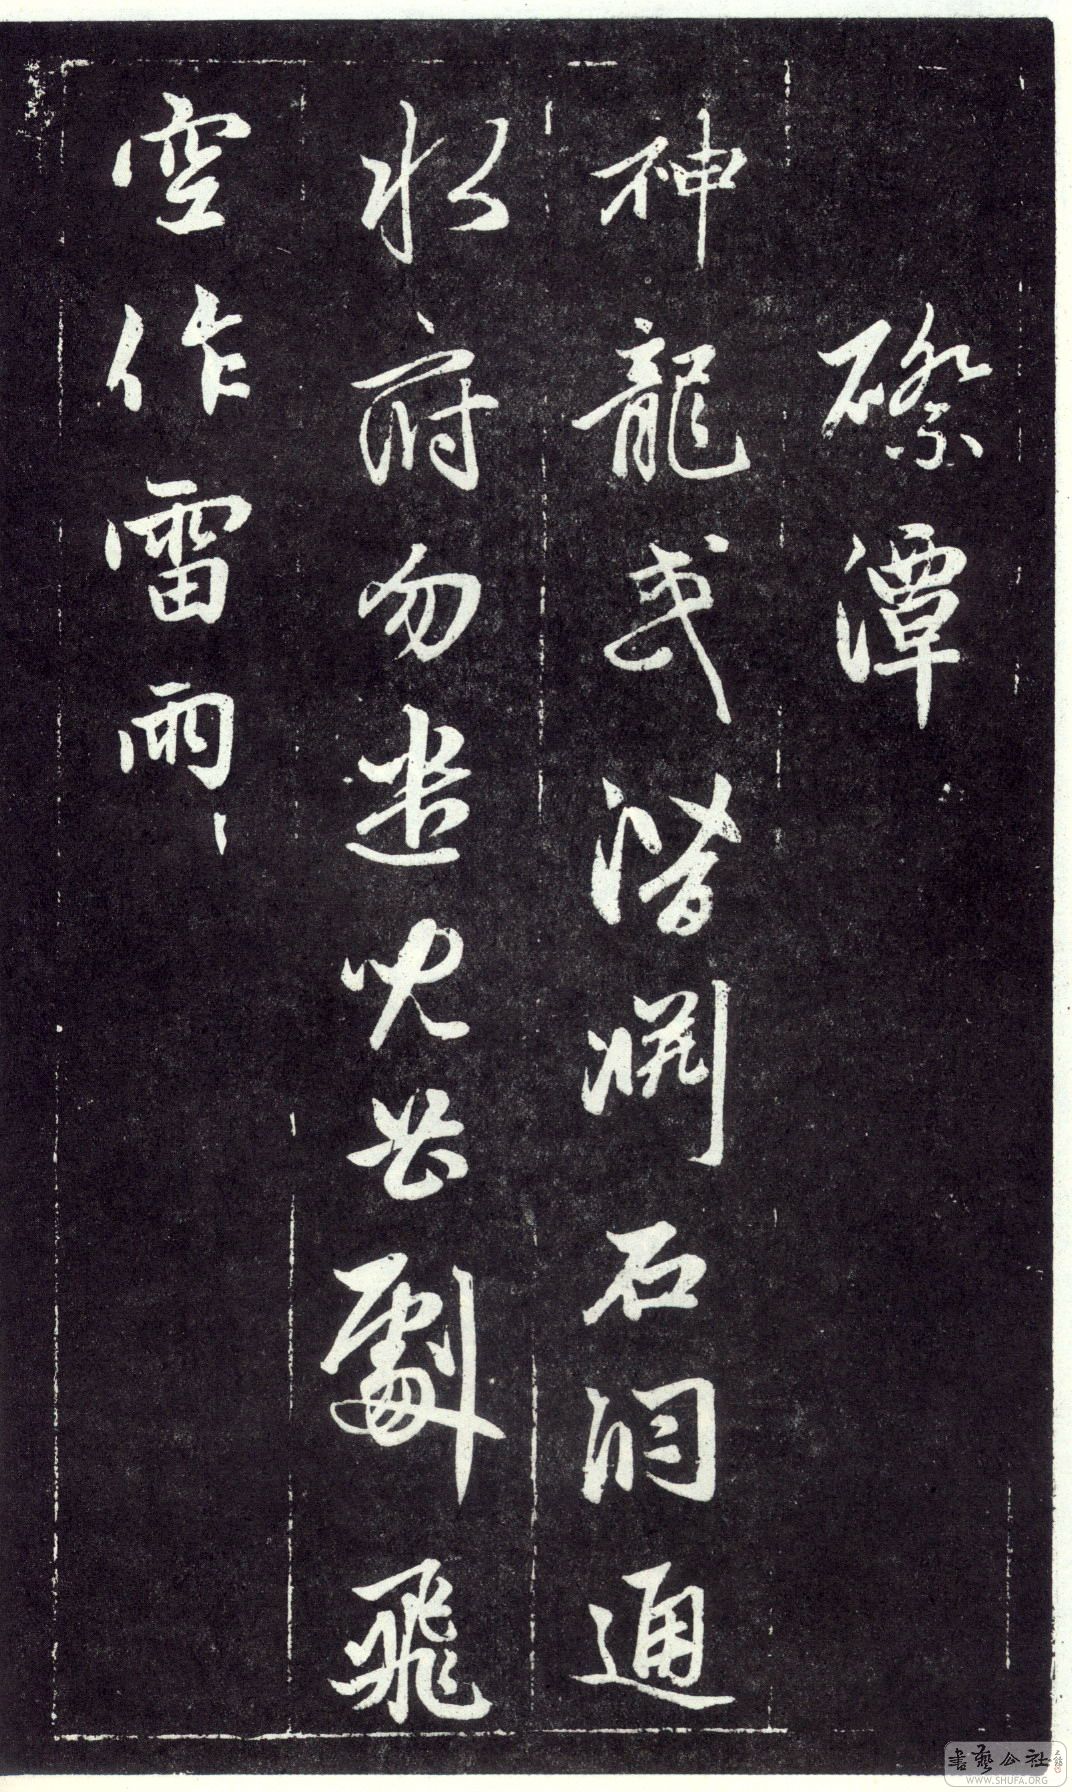 磜潭
神龍或潛淵石洞通
水府勿遣兒劚飛
空作雷雨
書藝公社
WWW.SHUFA.ORG